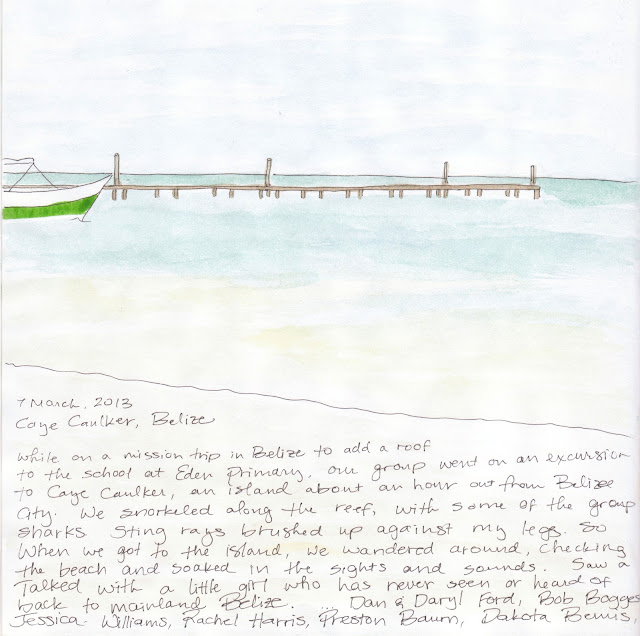 7 March, 2013
Caye Caulker, Belize
While on a mission trip in Belize to add a roof
to the school at Eden Primary, our group went on an excursion
to Caye Caulker, an island about an hour out from Belize
City. We snorkeled along the reef, with some of the group
sharks Sting rays brushed up against my legs. So
When we got to the island, we wandered around, checking
the beach and soaked in the sights and sounds. Saw a
Talked with a little girl who has never seen or heard of
back to mainland Belize. ... Dan & Daryl Ford, Bob Bogges
Jessica Williams, Rachel Harris, Preston Baum, Dakota Bemis,